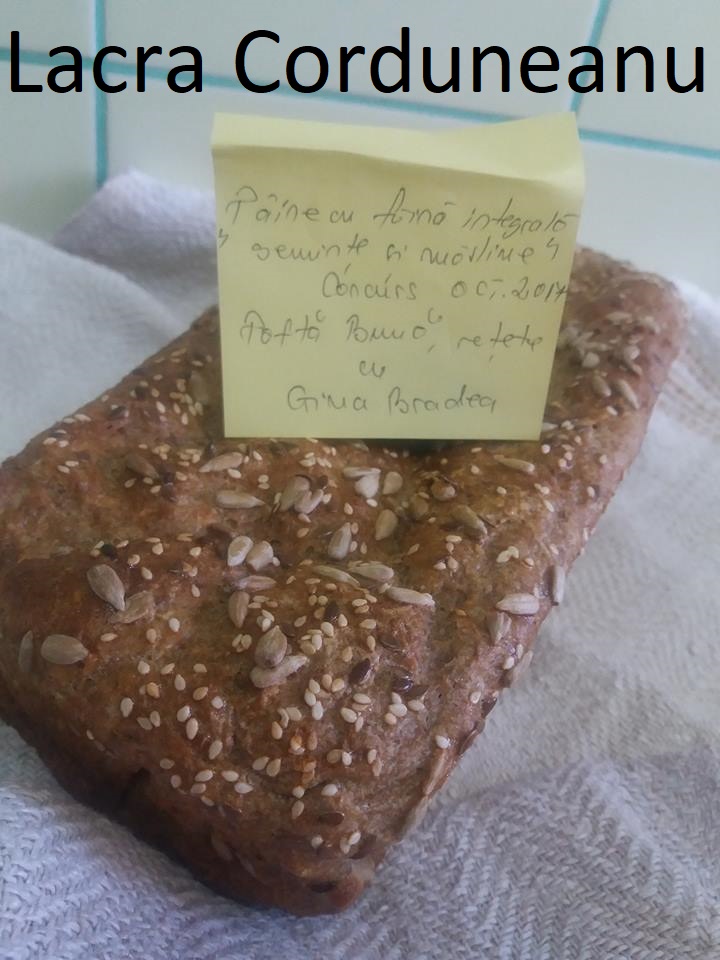 Lacra Corduneanu
Pâine cu făină integrală
„ semințe și măsline "
Concurs oct. 2017
Poftă Bună, rețete
cu
Gina Bradea